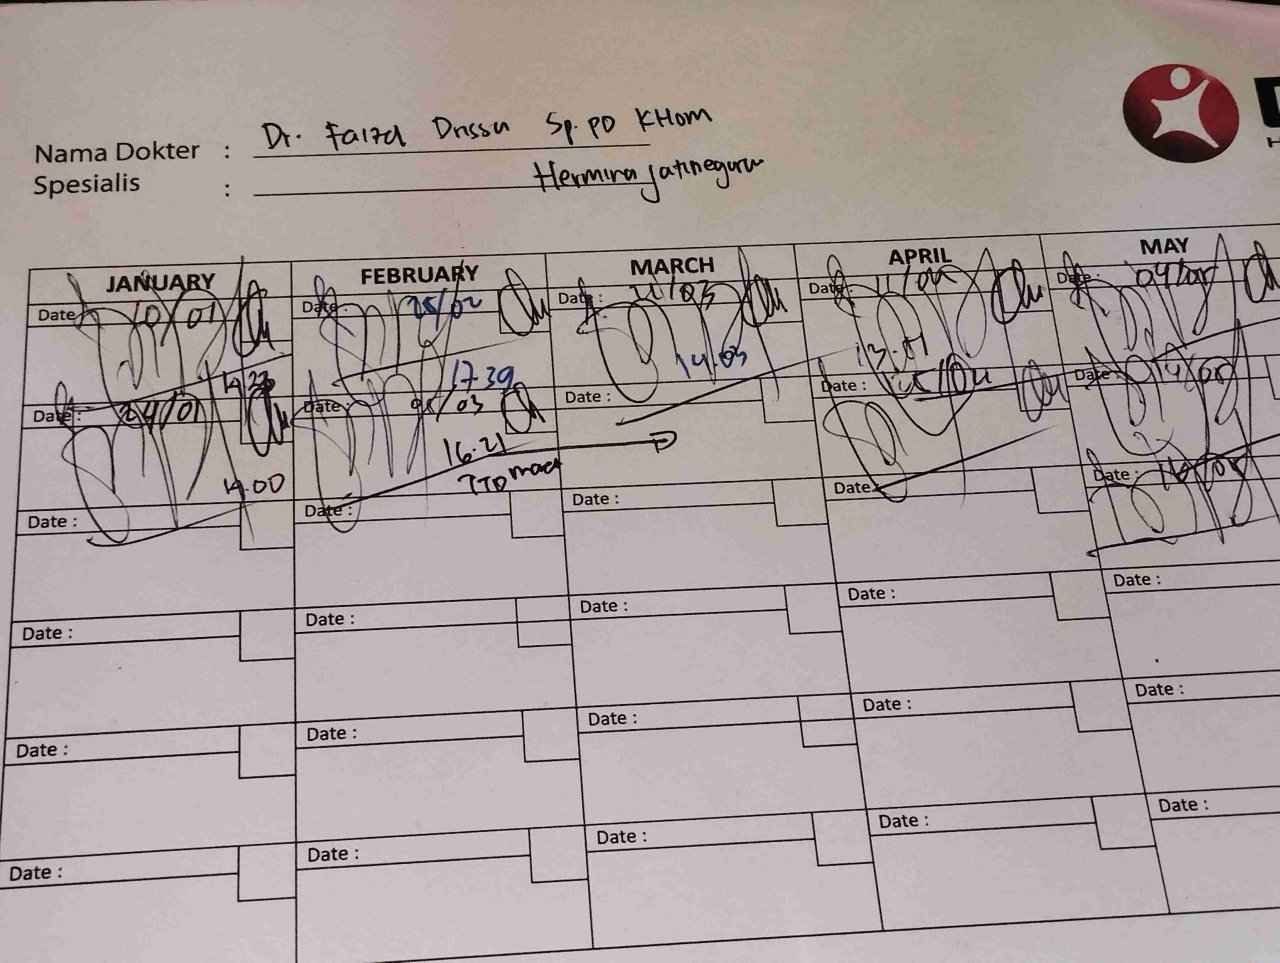 Nama Dokter : Dr. Faiza Drissa Sp. PD KHom
Spesialis : Hermina Jatinegara
JANUARY FEBRUARY MARCH APRIL MAY
Date : 10/01 Date : 25/02 Date : 21/03 Date : 11/04 Date : 09/05
17.39 14.03 13.01
Date : 24/01 Date : 05/03 Date : Date : Date : 14/05
14.00 16.21
TTD maret
Date : Date : Date : Date : Date :
Date : Date : Date : Date : Date :
Date : Date : Date : Date : Date :
Date : Date : Date : Date : Date :